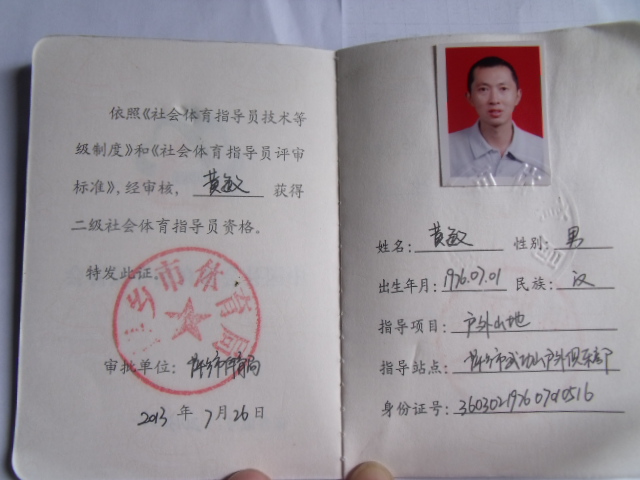 依照《社会体育指导员技术等
级制度》和《社会体育指导员评审
标准》,经审核, 黄敏 获得
二级社会体育指导员资格。
特发此证。
审批单位: 萍乡市体育局
2013 年 7 月 26 日
萍乡市体育局
姓名: 黄敏 性别: 男
出生年月: 1976.07.01 民族: 汉
指导项目: 户外山地
指导站点: 萍乡市武功山户外俱乐部
身份证号: